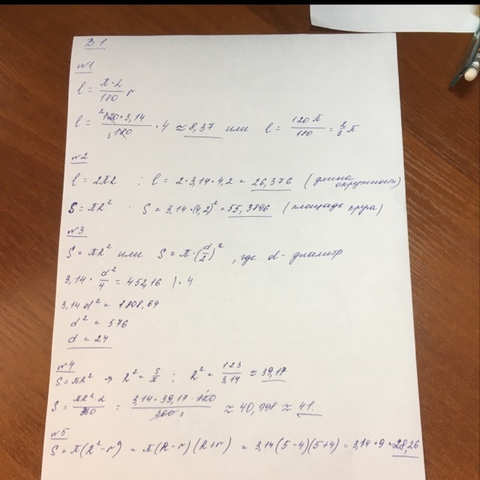 В1
№1
l = π·α/180 r
l = 120·3,14/180 · 4 ≈ 8,37 или l = 120π/180 = 2/3 π
№2
l = 2πr : l = 2·3,14·4,2 = 26,376 (длина окружности)
S = πr² : S = 3,14·(4,2)² = 55,3896 (площадь круга)
№3
S = πr² или S = π·(d/2)², где d - диаметр
3,14 · d²/4 = 452,16 |·4
3,14 d² = 1808,64
d² = 576
d = 24
№4
S = πR² ⇒ R² = S/π ; R² = 123/3,14 ≈ 39,17
S = πR²α/360 = 3,14·39,17·120/360 ≈ 40,998 ≈ 41.
№5
S = π(R²-r²) = π(R-r)(R+r) = 3,14(5-4)(5+4) = 3,14·9 = 28,26